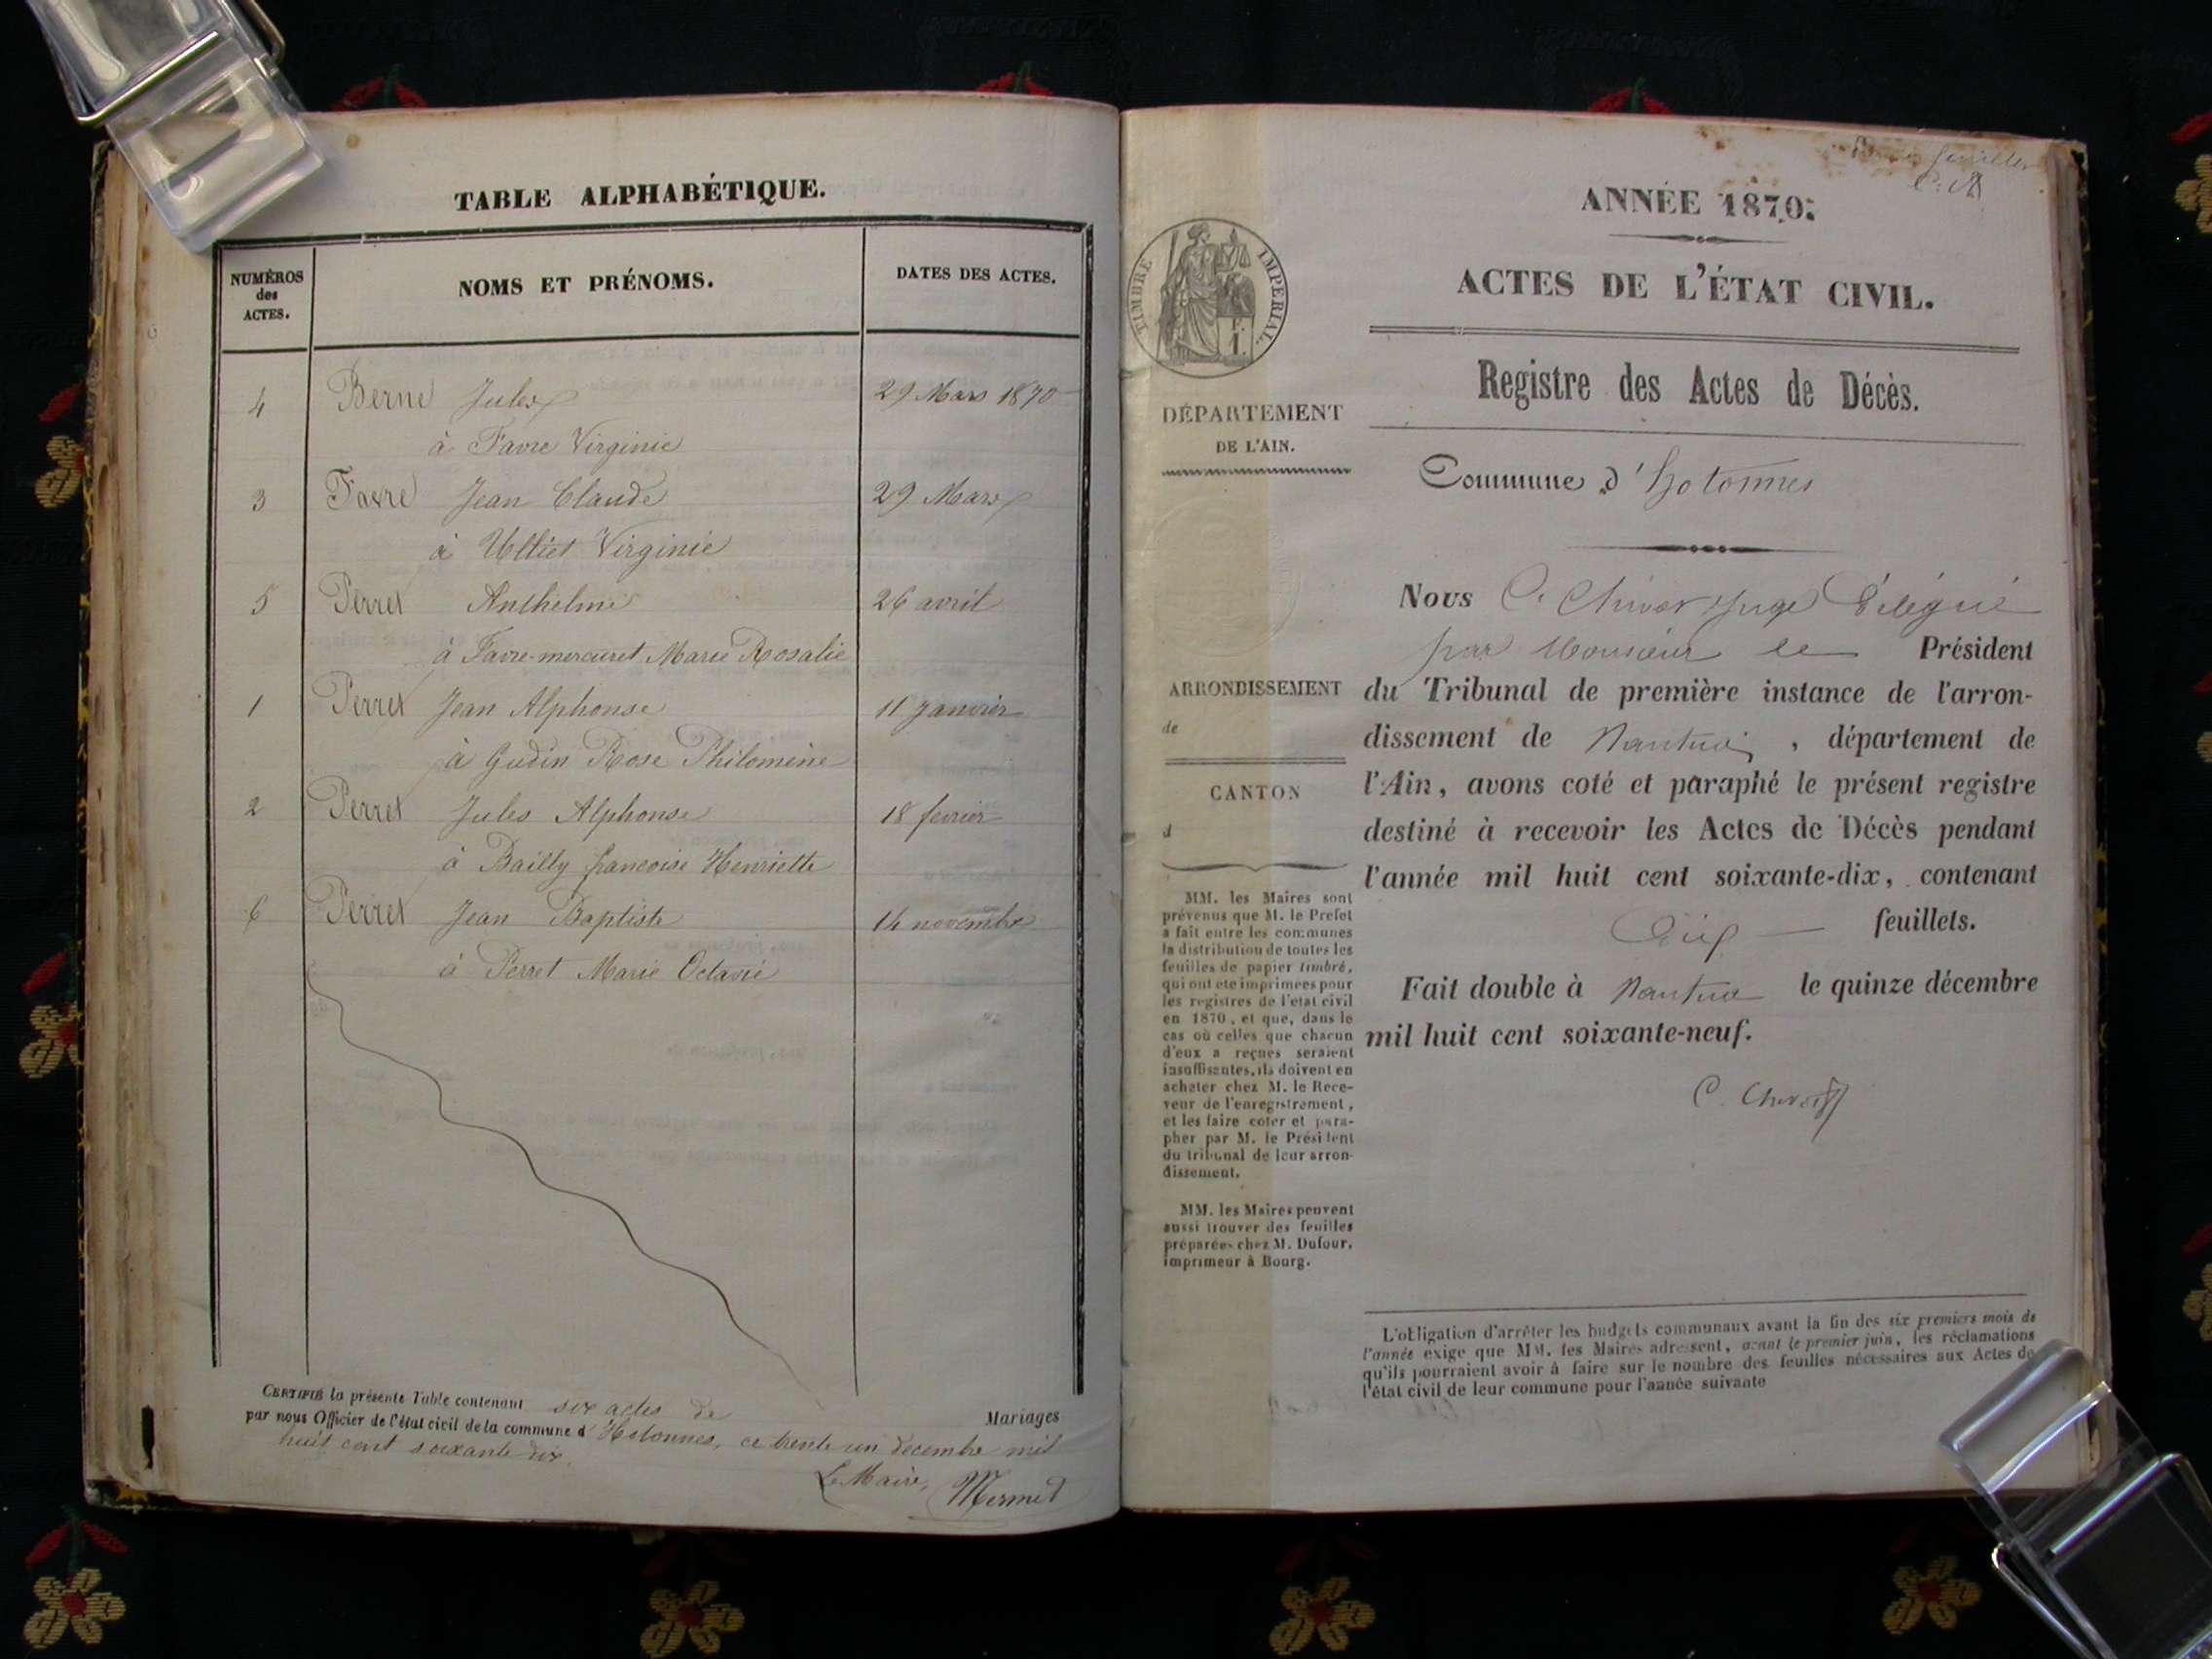 TABLE ALPHABÉTIQUE.
NUMÉROS
des
ACTES.
NOMS ET PRÉNOMS.
DATES DES ACTES.
4 Berne Jules 29 Mars 1870
à Favre Virginie
3 Favre Jean Claude 29 Mars
à Ulliet Virginie
5 Perret Anthelme 26 avril
à Favre-mercuret Marie Rosalie
1 Perret Jean Alphonse 11 Janvier
à Gudin Rose Philomène
2 Perret Jules Alphonse 18 fevrier
à Bailly francoise Henriette
6 Perret Jean Baptiste 14 novembre
à Perret Marie Octavie
CERTIFIÉ la présente Table contenant six actes de Mariages
par nous Officier de l'état civil de la commune d'Hotonnes, ce trente un decembre mil
huit cent soixante dix.
Le Maire, Mermet
TIMBRE IMPÉRIAL.
DÉPARTEMENT
DE L'AIN.
ARRONDISSEMENT
de
CANTON
d
MM. les Maires sont
prévenus que M. le Préfet
a fait entre les communes
la distribution de toutes les
feuilles de papier timbré,
qui ont été imprimées pour
les registres de l'état civil
en 1870, et que, dans le
cas où celles que chacun
d'eux a reçues seraient
insuffisantes, ils doivent en
acheter chez M. le Rece-
veur de l'enregistrement,
et les faire coter et para-
pher par M. le Président
du tribunal de leur arron-
dissement.
MM. les Maires peuvent
aussi trouver des feuilles
préparées chez M. Dufour,
imprimeur à Bourg.
ANNÉE 1870.
ACTES DE L'ÉTAT CIVIL.
Registre des Actes de Décès.
Commune d'Hotonnes
Nous C. Juge Délégué
par Monsieur le Président
du Tribunal de première instance de l'arron-
dissement de Nantua, département de
l'Ain, avons coté et paraphé le présent registre
destiné à recevoir les Actes de Décès pendant
l'année mil huit cent soixante-dix, contenant
Dix feuillets.
Fait double à Nantua le quinze décembre
mil huit cent soixante-neuf.
L'obligation d'arrêter les budgets communaux avant la fin des six premiers mois de
l'année exige que MM. les Maires adressent, avant le premier juin, les réclamations
qu'ils pourraient avoir à faire sur le nombre des feuilles nécessaires aux Actes de
l'état civil de leur commune pour l'année suivante